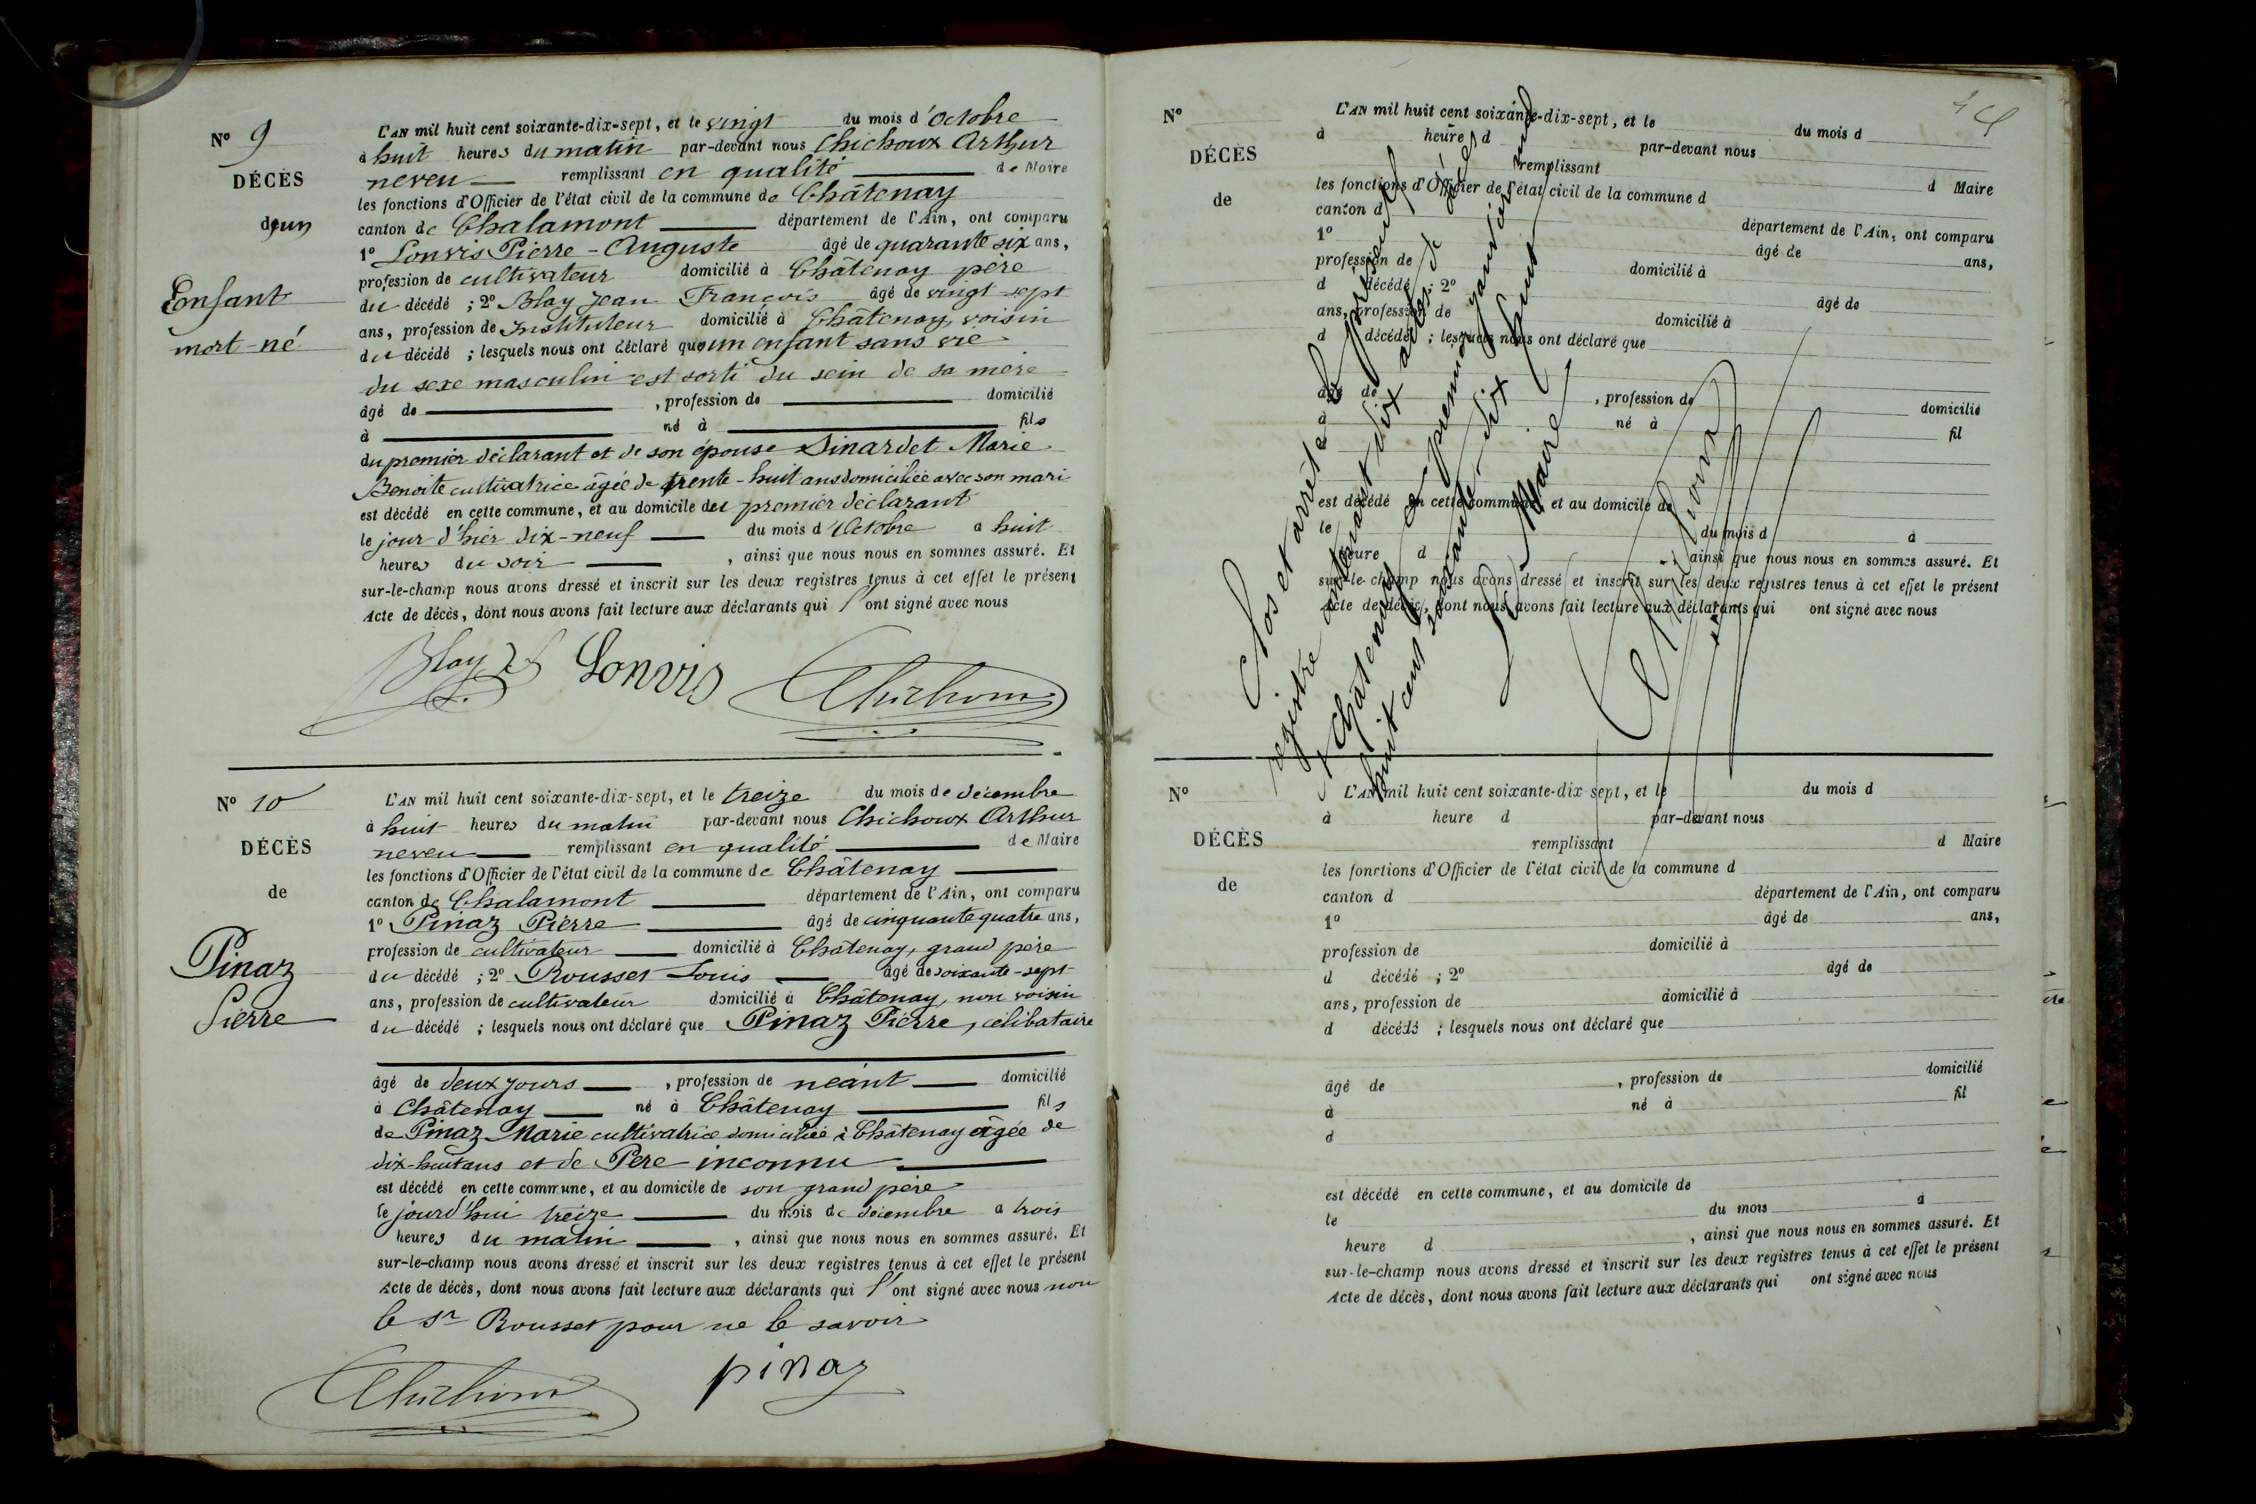 Nº 9
DÉCÈS
d'un
Enfant
mort-né
L'AN mil huit cent soixante-dix-sept, et le vingt du mois d'Octobre
à huit heures du matin par-devant nous Chichoux Arthur
neveu remplissant en qualité de Maire
les fonctions d'Officier de l'état civil de la commune de Châtenay
canton de Chalamont département de l'Ain, ont comparu
1º Lonvis Pierre-Auguste âgé de quarante six ans,
profession de cultivateur domicilié à Châtenay père
du décédé ; 2º Blay Jean François âgé de vingt-sept
ans, profession de Instituteur domicilié à Châtenay, voisin
du décédé ; lesquels nous ont déclaré que un enfant sans vie
du sexe masculin est sorti du sein de sa mère
âgé de , profession de domicilié
à né à fils
du premier déclarant et de son épouse Sinardet Marie
Benoite cultivatrice âgée de trente-huit ans domiciliée avec son mari
est décédé en cette commune, et au domicile du premier déclarant
le jour d'hier dix-neuf du mois d'Octobre à huit
heures du soir , ainsi que nous nous en sommes assuré. Et
sur-le-champ nous avons dressé et inscrit sur les deux registres tenus à cet effet le présent
Acte de décès, dont nous avons fait lecture aux déclarants qui l'ont signé avec nous
Blay Lonvis Chichoux
Nº 10
DÉCÈS
de
Pinaz
Pierre
L'AN mil huit cent soixante-dix-sept, et le treize du mois de décembre
à huit heures du matin par-devant nous Chichoux Arthur
neveu remplissant en qualité de Maire
les fonctions d'Officier de l'état civil de la commune de Châtenay
canton de Chalamont département de l'Ain, ont comparu
1º Pinaz Pierre âgé de cinquante quatre ans,
profession de cultivateur domicilié à Châtenay, grand père
du décédé ; 2º Rousset Louis âgé de soixante-sept
ans, profession de cultivateur domicilié à Châtenay, non voisin
du décédé ; lesquels nous ont déclaré que Pinaz Pierre, célibataire
âgé de deux jours , profession de néant domicilié
à Châtenay né à Châtenay fils
de Pinaz Marie cultivatrice domiciliée à Châtenay âgée de
dix-huit ans et de Père inconnu
est décédé en cette commune, et au domicile de son grand père
le jourd'hui treize du mois de décembre à trois
heures du matin , ainsi que nous nous en sommes assuré. Et
sur-le-champ nous avons dressé et inscrit sur les deux registres tenus à cet effet le présent
Acte de décès, dont nous avons fait lecture aux déclarants qui l'ont signé avec nous non
le Sr Rousset pour ne le savoir
Chichoux pinaz
Nº
DÉCÈS
de
L'AN mil huit cent soixante-dix-sept, et le du mois d
à heure d par-devant nous
remplissant d Maire
les fonctions d'Officier de l'état civil de la commune d
canton d département de l'Ain, ont comparu
1º âgé de ans,
profession de domicilié à
d décédé ; 2º âgé de
ans, profession de domicilié à
d décédé ; lesquels nous ont déclaré que
âgé de , profession de domicilié
à né à fil
d
est décédé en cette commune, et au domicile de
le du mois d à
heure d , ainsi que nous nous en sommes assuré. Et
sur-le-champ nous avons dressé et inscrit sur les deux registres tenus à cet effet le présent
Acte de décès, dont nous avons fait lecture aux déclarants qui ont signé avec nous
Clos et arrêté le présent
registre contenant dix actes de décès
à Châtenay le premier janvier mil
huit cent soixante-dix huit
Le Maire
Chichoux
Nº
DÉCÈS
de
L'AN mil huit cent soixante-dix sept, et le du mois d
à heure d par-devant nous
remplissant d Maire
les fonctions d'Officier de l'état civil de la commune d
canton d département de l'Ain, ont comparu
1º âgé de ans,
profession de domicilié à
d décédé ; 2º âgé de
ans, profession de domicilié à
d décédé ; lesquels nous ont déclaré que
âgé de , profession de domicilié
à né à fil
d
est décédé en cette commune, et au domicile de
le du mois à
heure d , ainsi que nous nous en sommes assuré. Et
sur-le-champ nous avons dressé et inscrit sur les deux registres tenus à cet effet le présent
Acte de décès, dont nous avons fait lecture aux déclarants qui ont signé avec nous